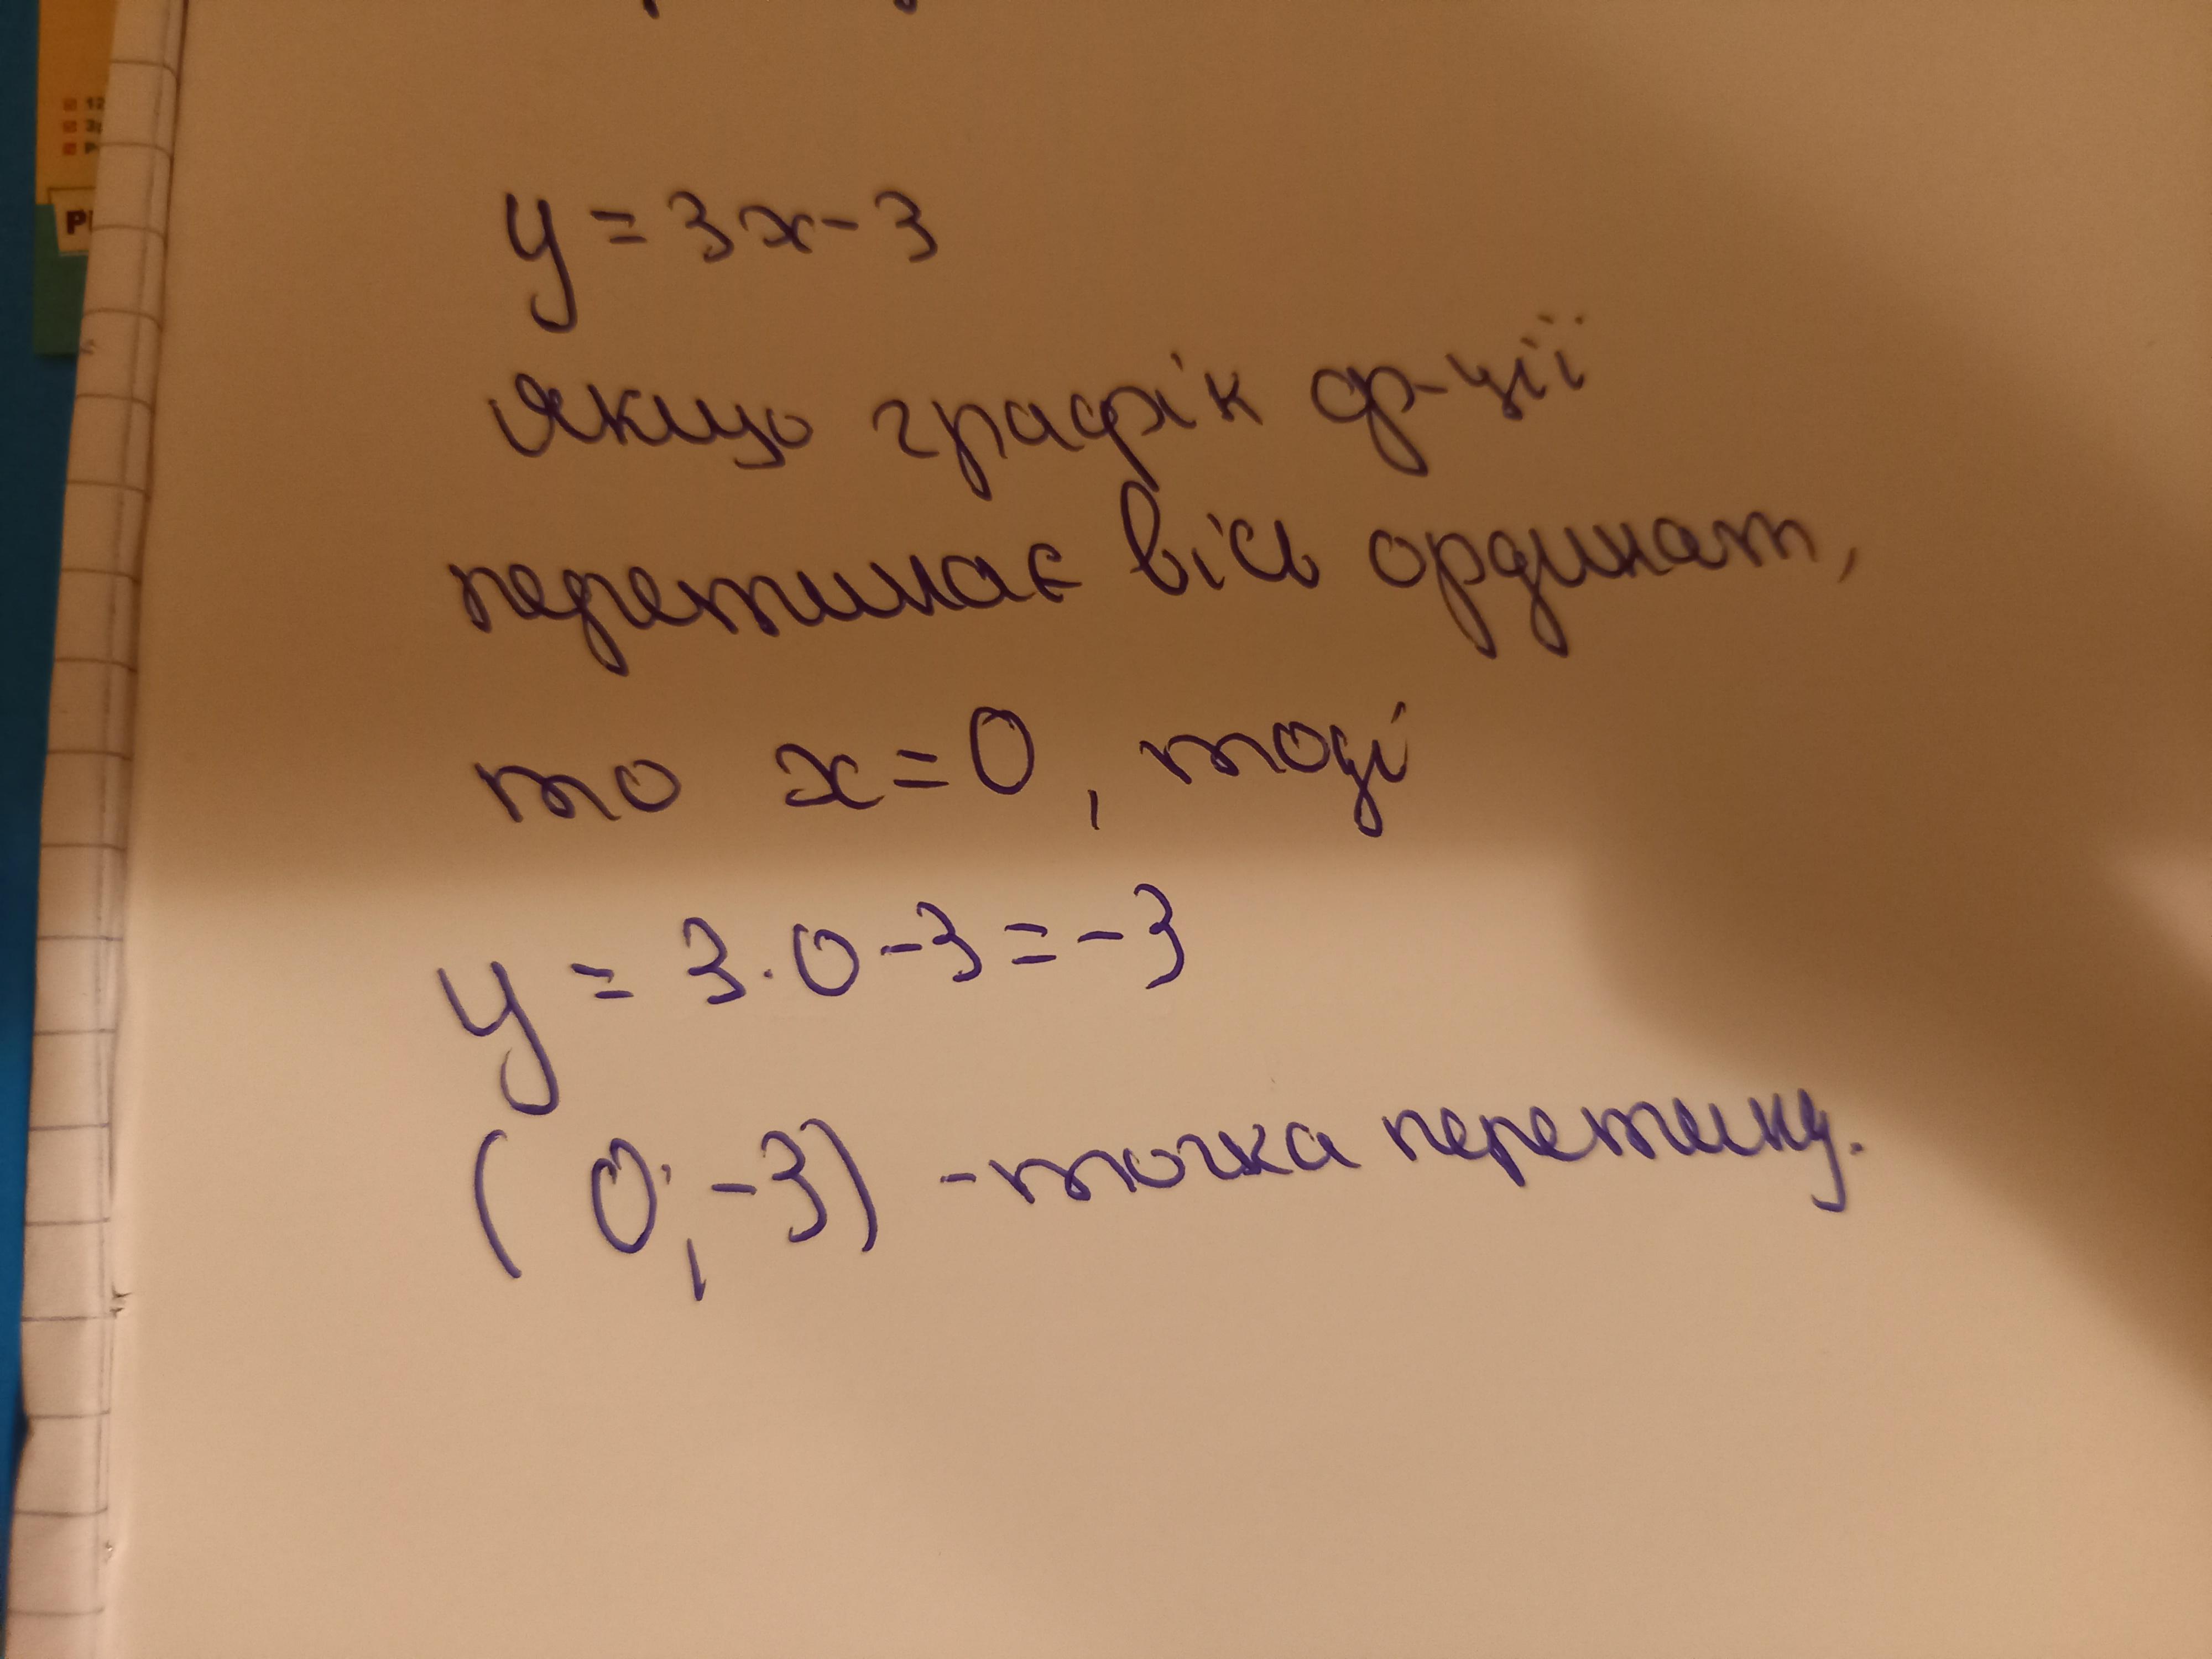 12
P
y = 3x - 3
якщо графік ф-ції
перетинає вісь ординат,
то x = 0, тоді
y = 3·0 - 3 = -3
(0; -3) - точка перетину.